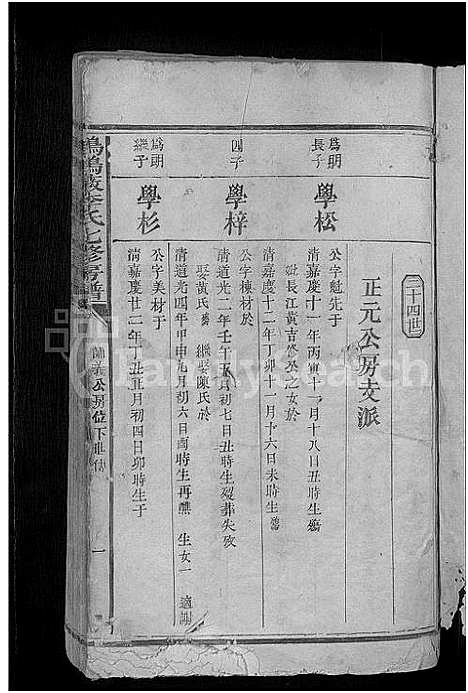 二十四世
正元公房支派
為明長子
學松
公字魁先于
清嘉慶十一年丙寅十一月十八日丑時生
娶長江黃吉修公之女於
清嘉慶十二年丁卯十一月十六日未時生
四子
學梓
公字棟材於
清道光二年壬午五月初七日丑時生娶葬失攷
娶黃氏 繼娶陳氏於
清道光四年甲申九月初六日酉時生再醮 生女一 適謝
為明繼子
學杉
公字美材于
清嘉慶廿二年丁丑正月初四日卯時生于
李氏七修房譜
公房位下世系
一